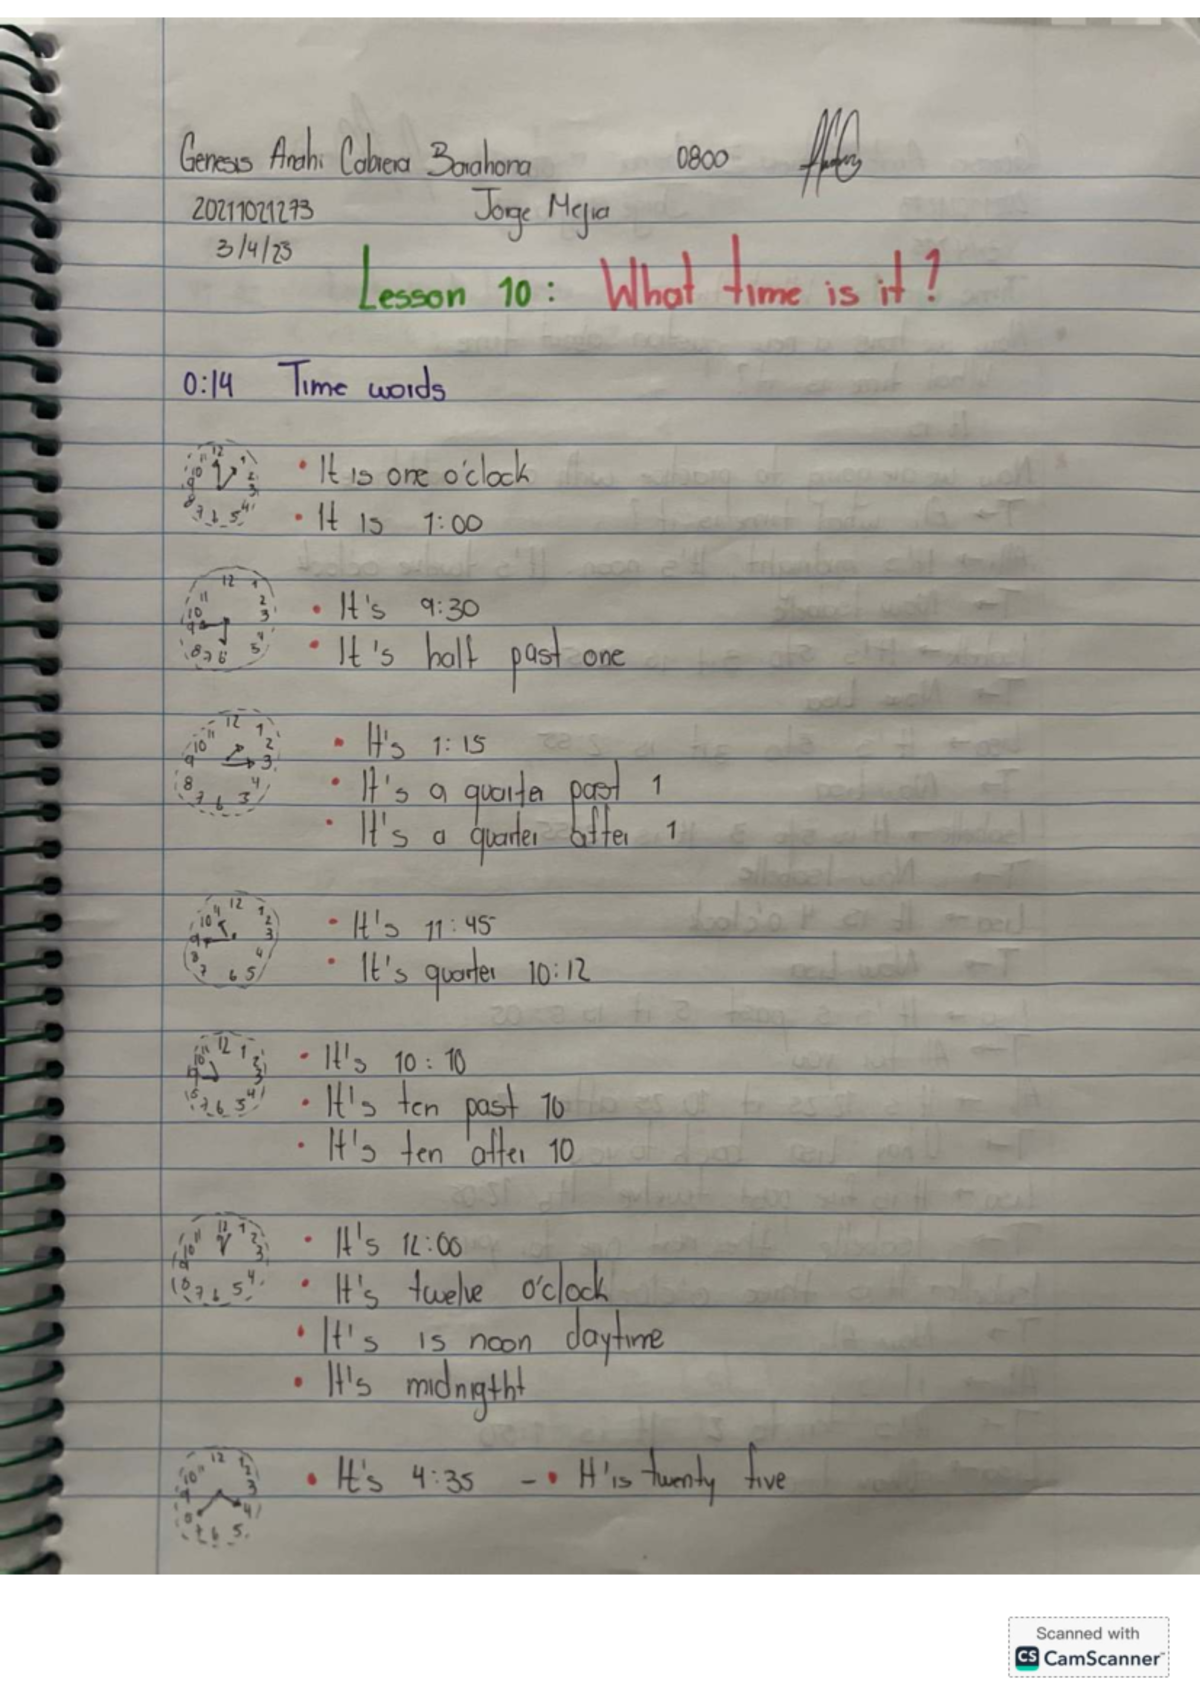 Genesis Anahi Cabrera Barahona 0800
20211021273 Jorge Mejia
3/4/23
Lesson 10: What time is it?
0:14 Time words
• It is one o'clock
• It is 1:00
• It's 9:30
• It's half past one
• It's 1:15
• It's a quarter past 1
• It's a quarter after 1
• It's 11:45
• It's quarter 10:12
• It's 10:10
• It's ten past 10
• It's ten after 10
• It's 12:00
• It's twelve o'clock
• It's is noon daytime
• It's midnigtht
• It's 4:35 - • It'is twenty five
Scanned with
CS CamScanner